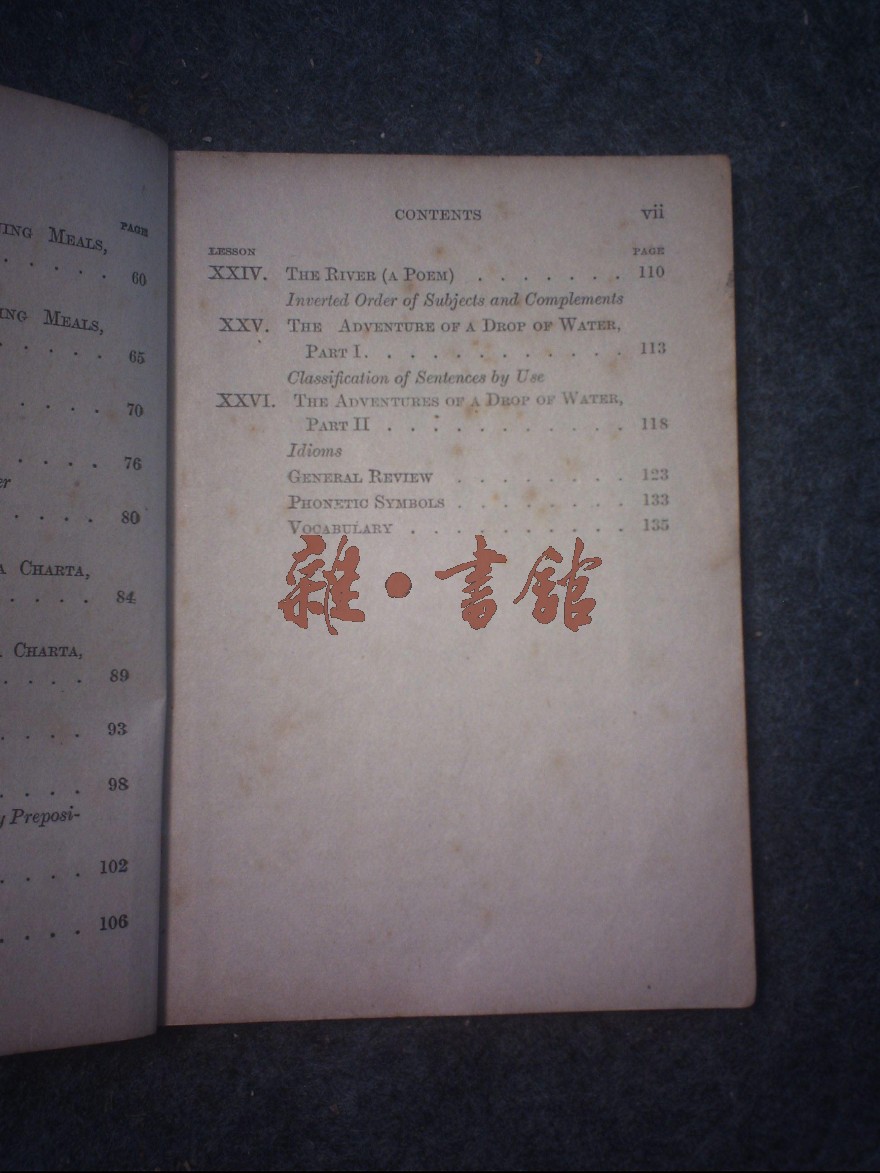 PAGE
ING MEALS,
. . . . . 60
ING MEALS,
. . . . . 65
. . . . 70
. . . . 76
er
. . . . 80
A CHARTA,
. . . . 84
CHARTA,
. . . . 89
. . . . 93
. . . . 98
y Preposi-
. . . . 102
. . . . 106
CONTENTS vii
LESSON PAGE
XXIV. THE RIVER (A POEM) . . . . . . . 110
Inverted Order of Subjects and Complements
XXV. THE ADVENTURE OF A DROP OF WATER,
PART I. . . . . . . . . . . . 113
Classification of Sentences by Use
XXVI. THE ADVENTURES OF A DROP OF WATER,
PART II . . . . . . . . . . . 118
Idioms
GENERAL REVIEW . . . . . . . . 123
PHONETIC SYMBOLS . . . . . . . . 133
VOCABULARY . . . . . . . . . . 135
雜·書館